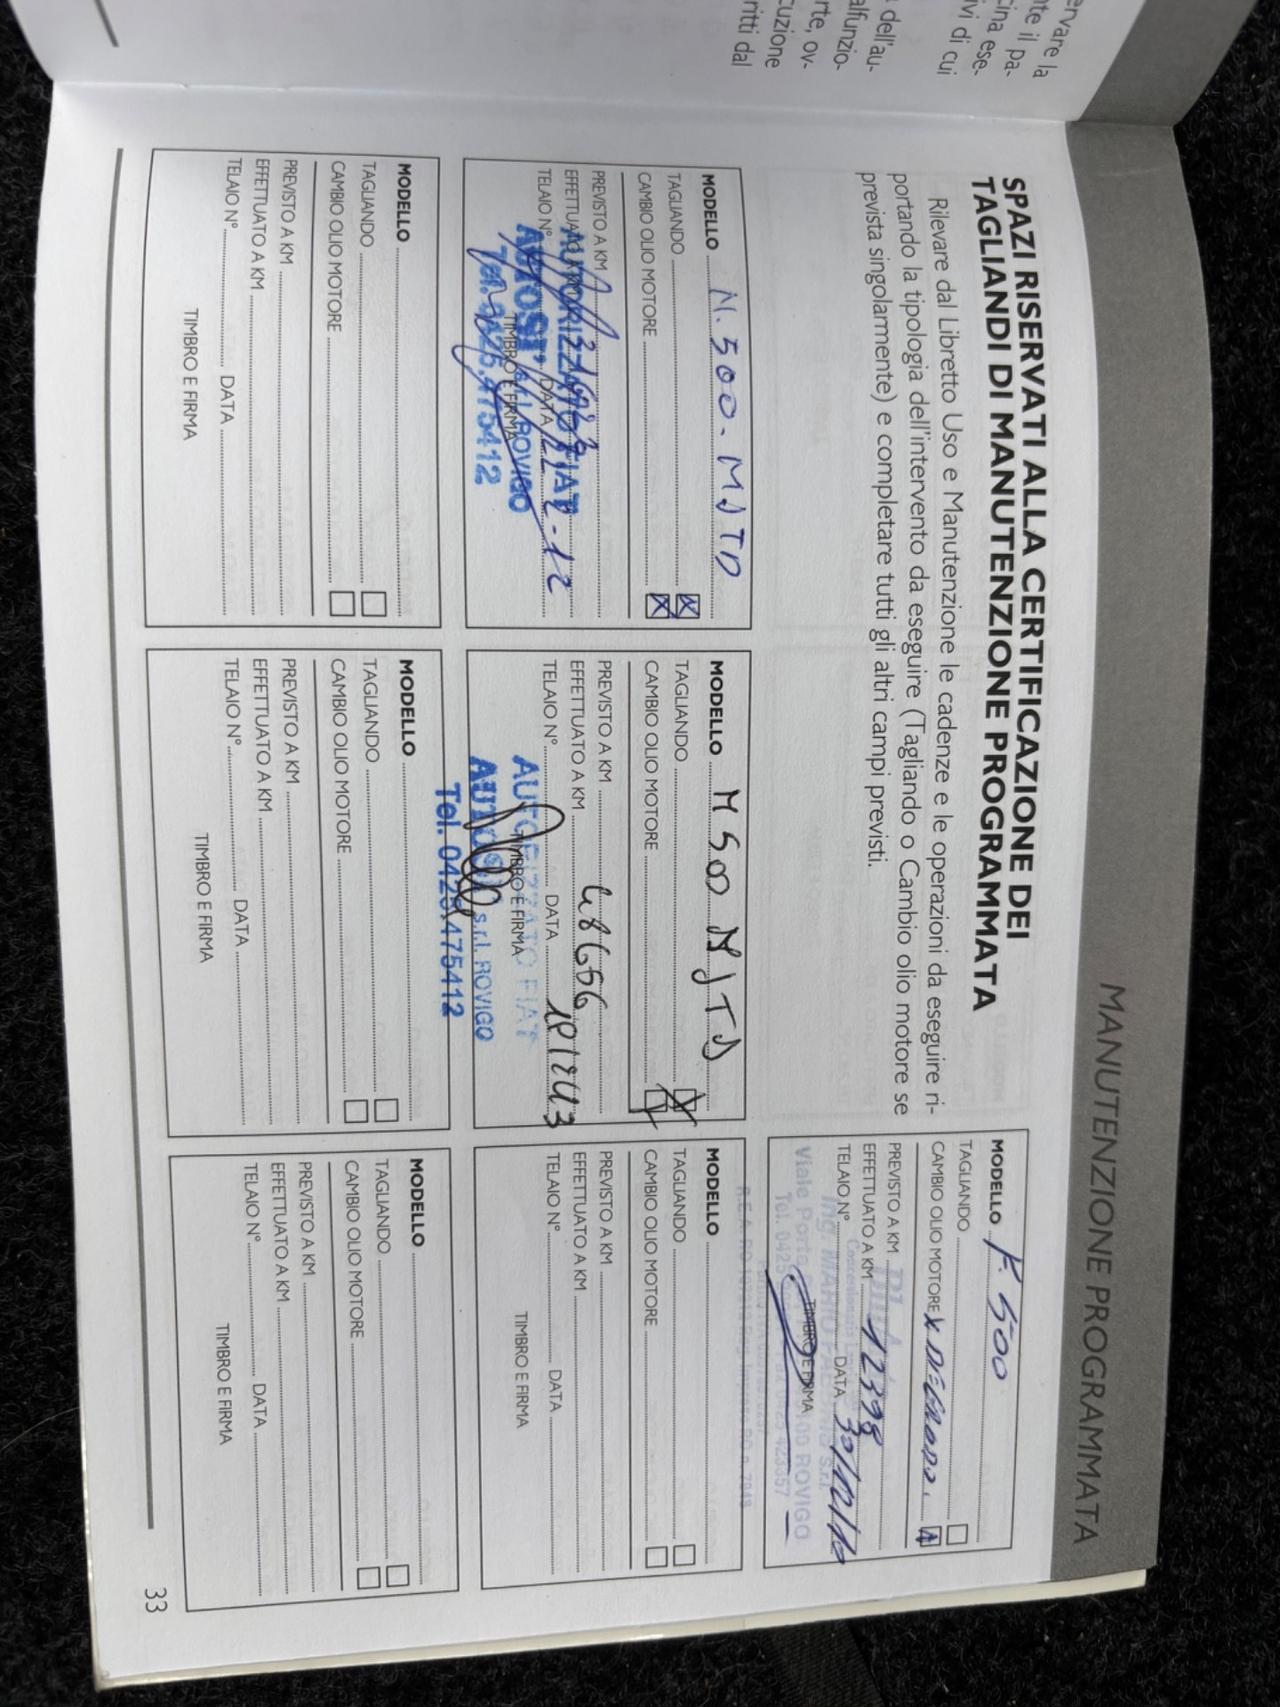 MANUTENZIONE PROGRAMMATA
SPAZI RISERVATI ALLA CERTIFICAZIONE DEI
TAGLIANDI DI MANUTENZIONE PROGRAMMATA
Rilevare dal Libretto Uso e Manutenzione le cadenze e le operazioni da eseguire ri-
portando la tipologia dell'intervento da eseguire (Tagliando o Cambio olio motore se
prevista singolarmente) e completare tutti gli altri campi previsti.
MODELLO F 500
TAGLIANDO
CAMBIO OLIO MOTORE X DEGRADO.
PREVISTO A KM
EFFETTUATO A KM 12398
TELAIO N° DATA 30/12/10
TIMBRO E FIRMA
Ing. MARIO
Viale Porta ROVIGO
Tel. 0425
MODELLO N. 500. MJTD
TAGLIANDO X
CAMBIO OLIO MOTORE X
PREVISTO A KM
EFFETTUATO A KM
TELAIO N° DATA
TIMBRO E FIRMA
AUTORIZZATO FIAT
AUTOSI' s.r.l. ROVIGO
Tel. 0425.475412
MODELLO M 500 MJTD
TAGLIANDO X
CAMBIO OLIO MOTORE
PREVISTO A KM
EFFETTUATO A KM 48656
TELAIO N° DATA
TIMBRO E FIRMA
AUTORIZZATO FIAT
AUTOSI' s.r.l. ROVIGO
Tel. 0425.475412
MODELLO
TAGLIANDO
CAMBIO OLIO MOTORE
PREVISTO A KM
EFFETTUATO A KM
TELAIO N° DATA
TIMBRO E FIRMA
MODELLO
TAGLIANDO
CAMBIO OLIO MOTORE
PREVISTO A KM
EFFETTUATO A KM
TELAIO N° DATA
TIMBRO E FIRMA
MODELLO
TAGLIANDO
CAMBIO OLIO MOTORE
PREVISTO A KM
EFFETTUATO A KM
TELAIO N° DATA
TIMBRO E FIRMA
MODELLO
TAGLIANDO
CAMBIO OLIO MOTORE
PREVISTO A KM
EFFETTUATO A KM
TELAIO N° DATA
TIMBRO E FIRMA
33